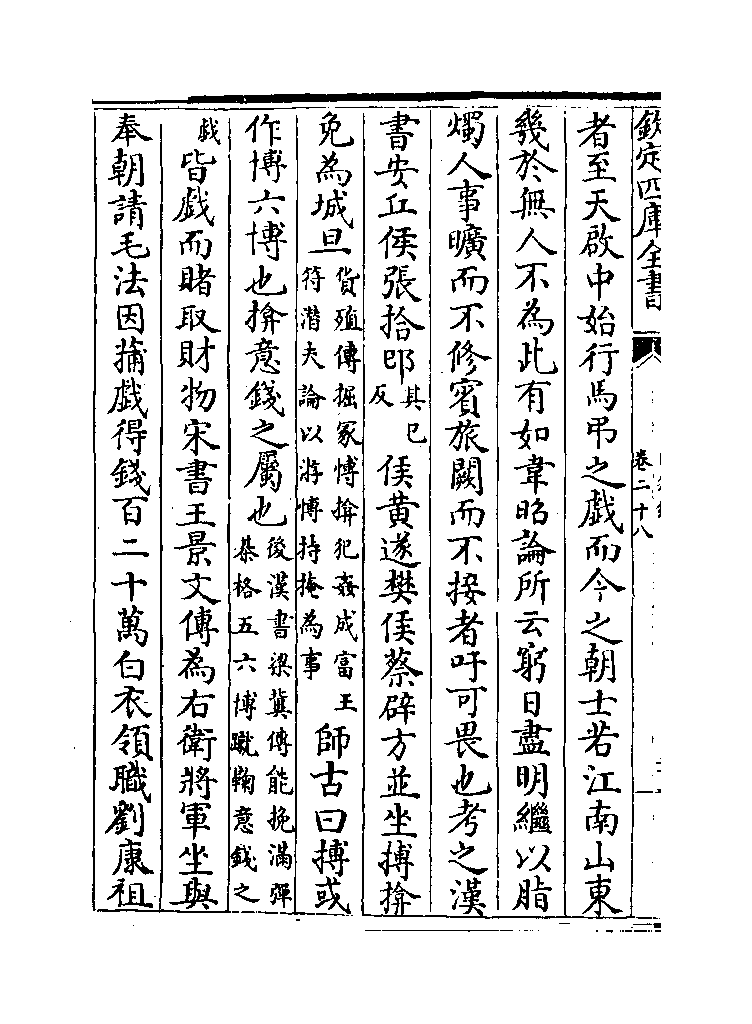 欽定四庫全書
卷二十八
者至天啟中始行馬弔之戲而今之朝士若江南山東
幾於無人不為此有如韋昭論所云窮日盡明繼以脂
燭人事曠而不修賓旅闕而不接者吁可畏也考之漢
書安丘侯張拾䢼其已反侯黃遂樊侯蔡辟方並坐搏揜
免為城旦貨殖傳掘冢愽揜犯姦成富王符潛夫論以游愽持掩為事師古曰搏或
作博六博也揜意錢之屬也後漢書梁冀傳能挽滿彈棊格五六博蹴鞠意錢之
戲皆戲而賭取財物宋書王景文傳為右衛將軍坐與
奉朝請毛法因蒱戲得錢百二十萬白衣領職劉康祖